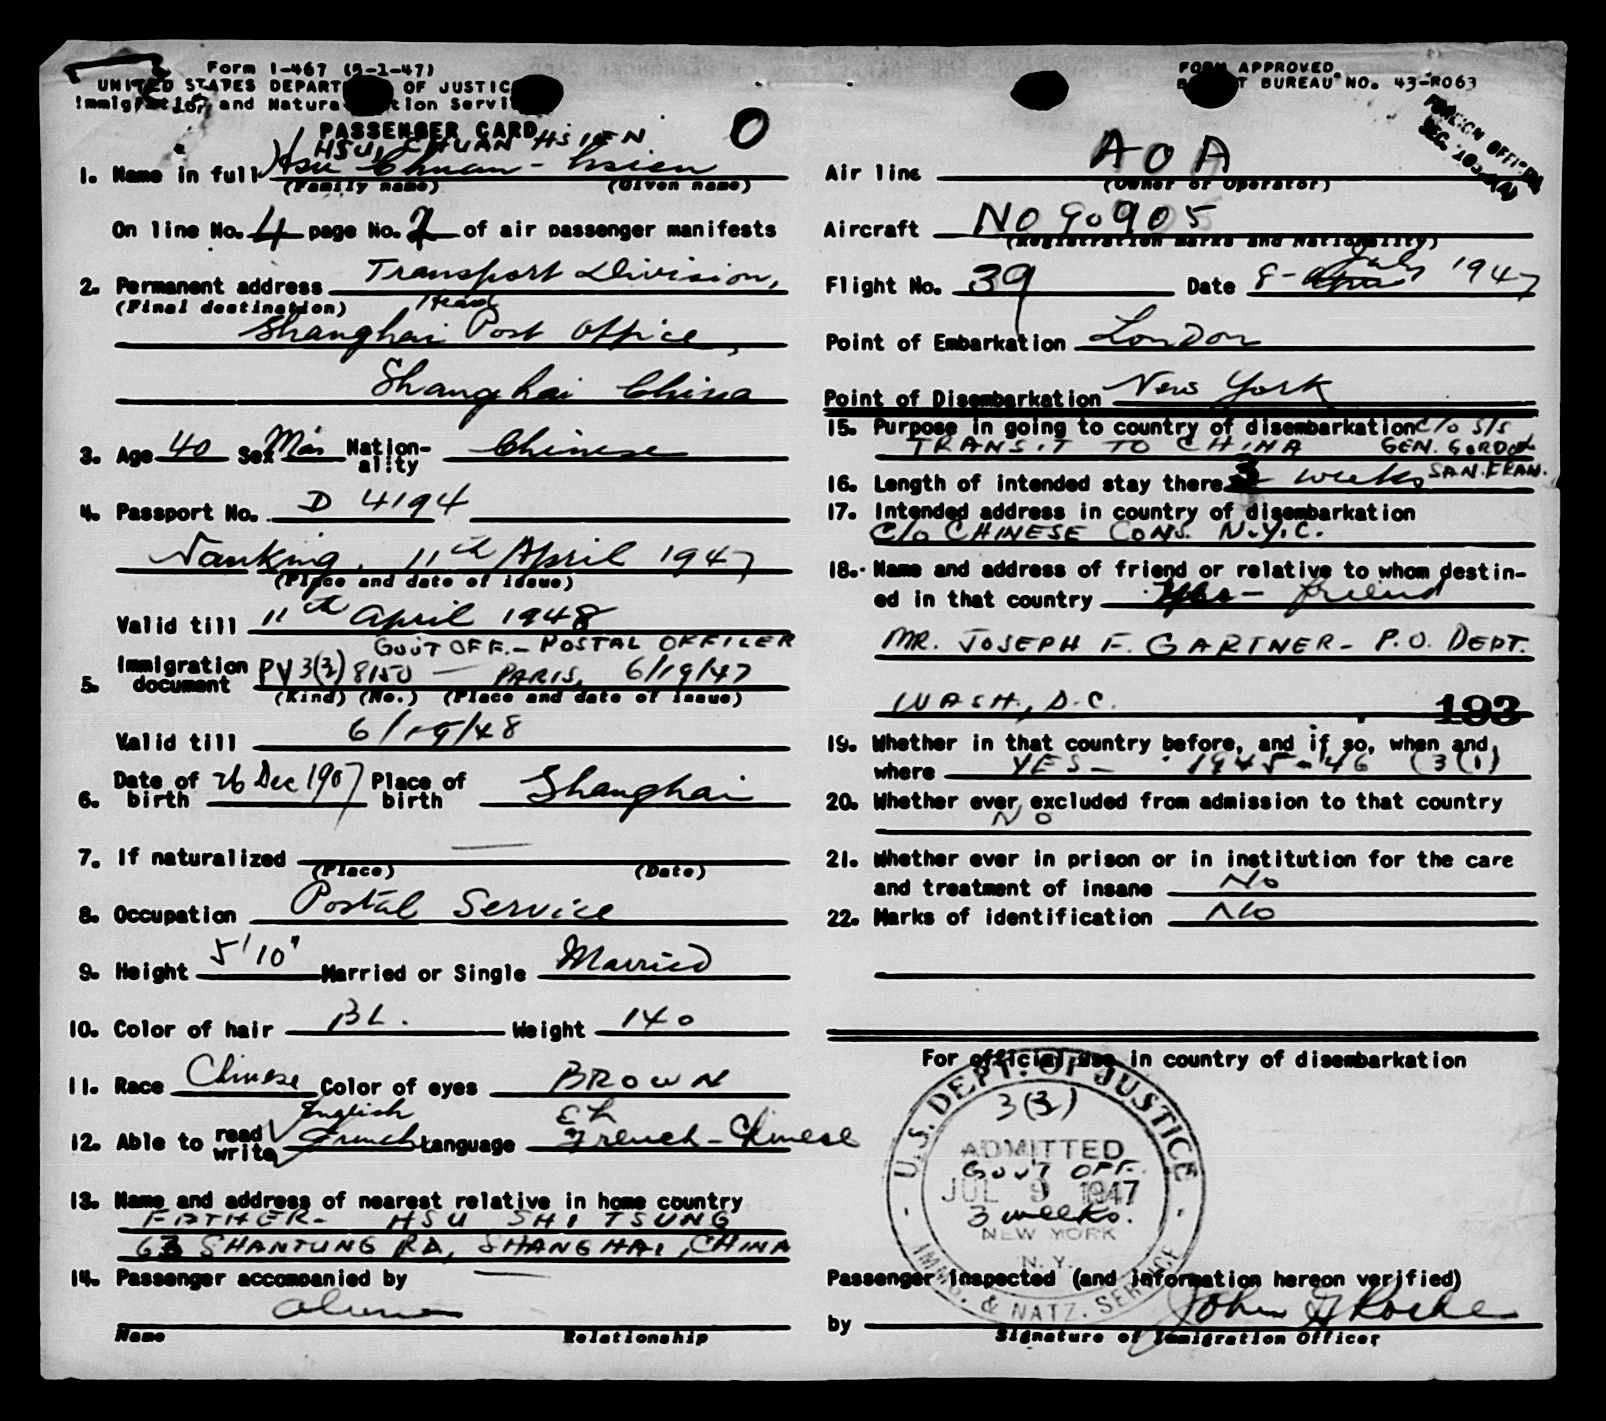 Form I-467 (5-1-47)
UNITED STATES DEPARTMENT OF JUSTICE
Immigration and Naturalization Service
PASSENGER CARD
O
FORM APPROVED
BUDGET BUREAU NO. 43-R063
HSU, CHUAN HSIEN
1. Name in full Hsu Chuan-hsien
(Family name) (Given name)
On line No. 4 page No. 2 of air passenger manifests
2. Permanent address Transport Division,
(Final destination) Head
Shanghai Post Office,
Shanghai China
3. Age 40 Sex Nation-ality Chinese
4. Passport No. D 4194
Nanking, 11th April 1947
(Place and date of issue)
Valid till 11th April 1948
GOV'T OFF. - POSTAL OFFICER
5. Immigration document PV 3(2) 8150 - PARIS, 6/19/47
(Kind) (No.) (Place and date of issue)
Valid till 6/19/48
6. Date of birth 26 Dec 1907 Place of birth Shanghai
7. If naturalized —
(Place) (Date)
8. Occupation Postal Service
9. Height 5'10" Married or Single Married
10. Color of hair BL. Weight 140
11. Race Chinese Color of eyes BROWN
English
12. Able to read write French Language French-Chinese
13. Name and address of nearest relative in home country
FATHER - HSU SHI TSUNG
63 SHANTUNG RD, SHANGHAI, CHINA
14. Passenger accompanied by —
alone
Name Relationship
Air line AOA
(Owner or Operator)
Aircraft NO 90905
(Registration marks and Nationality)
Flight No. 39 Date 8-July 1947
Point of Embarkation London
Point of Disembarkation New York
15. Purpose in going to country of disembarkation C/O S/S
TRANSIT TO CHINA GEN. GORDON
SAN. FRAN.
16. Length of intended stay there 3 weeks
17. Intended address in country of disembarkation
C/O CHINESE CONS. N.Y.C.
18. Name and address of friend or relative to whom destin-
ed in that country - friend
MR. JOSEPH F. GARTNER - P.O. DEPT.
WASH., D.C. 193
19. Whether in that country before, and if so, when and
where YES - 1945-46 (3(1)
20. Whether ever excluded from admission to that country
NO
21. Whether ever in prison or in institution for the care
and treatment of insane No
22. Marks of identification No
For official use in country of disembarkation
U.S. DEPT. OF JUSTICE
3(2)
ADMITTED
GOV'T OFF.
JUL 9 1947
3 weeks.
NEW YORK
N.Y.
IMMG. & NATZ. SERVICE
Passenger inspected (and information hereon verified)
by
Signature of Immigration Officer